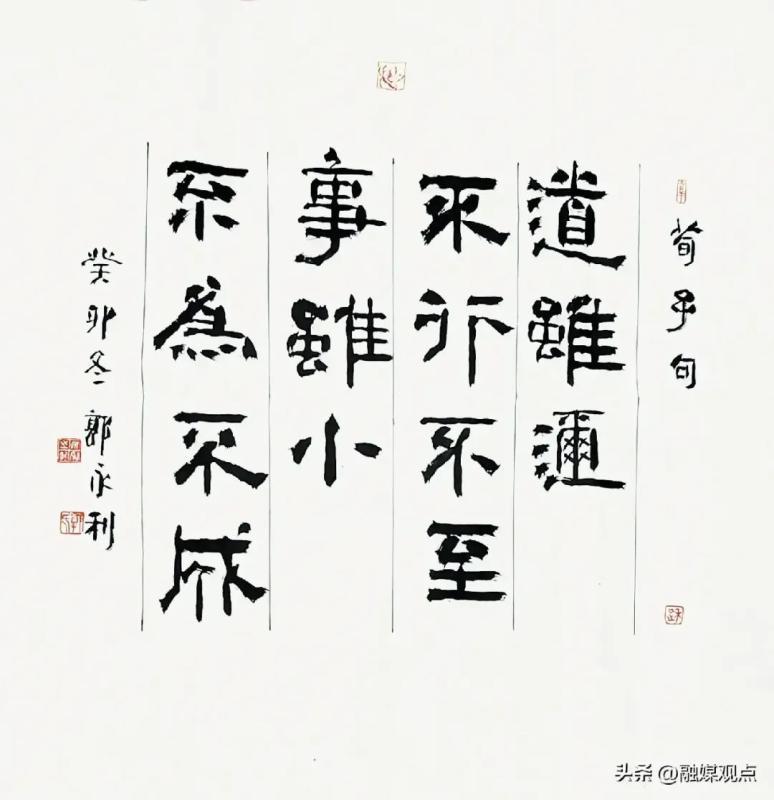 荀子句
道雖邇
不行不至
事雖小
不為不成
癸卯冬 郭永利
头条 @融媒观点